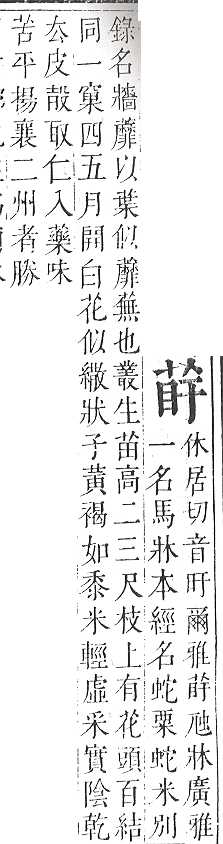 蓒
休居切音旴爾雅蓒虺牀廣雅
一名馬牀本經名蛇粟蛇米别
錄名牆蘼以葉似蘼蕪也叢生苗高二三尺枝上有花頭百結
同一窠四五月開白花似繖狀子黃褐如黍米輕虛采實陰乾
去皮㱿取仁入藥味
苦平揚襄二州者勝